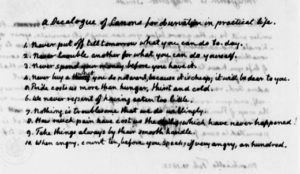 a Decalogue of Canons for observation in practical life.
1. Never put off till tomorrow what you can do to-day.
2. Never trouble another for what you can do yourself.
3. Never spend your money before you have it.
4. Never buy a thing you do not want, because it is cheap; it will be dear to you.
5. Pride costs us more than hunger, thirst and cold.
6. We never repent of having eaten too little.
7. Nothing is troublesome that we do willingly.
8. How much pain have cost us the evils which have never happened!
9. Take things always by their smooth handle.
10. When angry, count ten, before you speak; if very angry, an hundred.